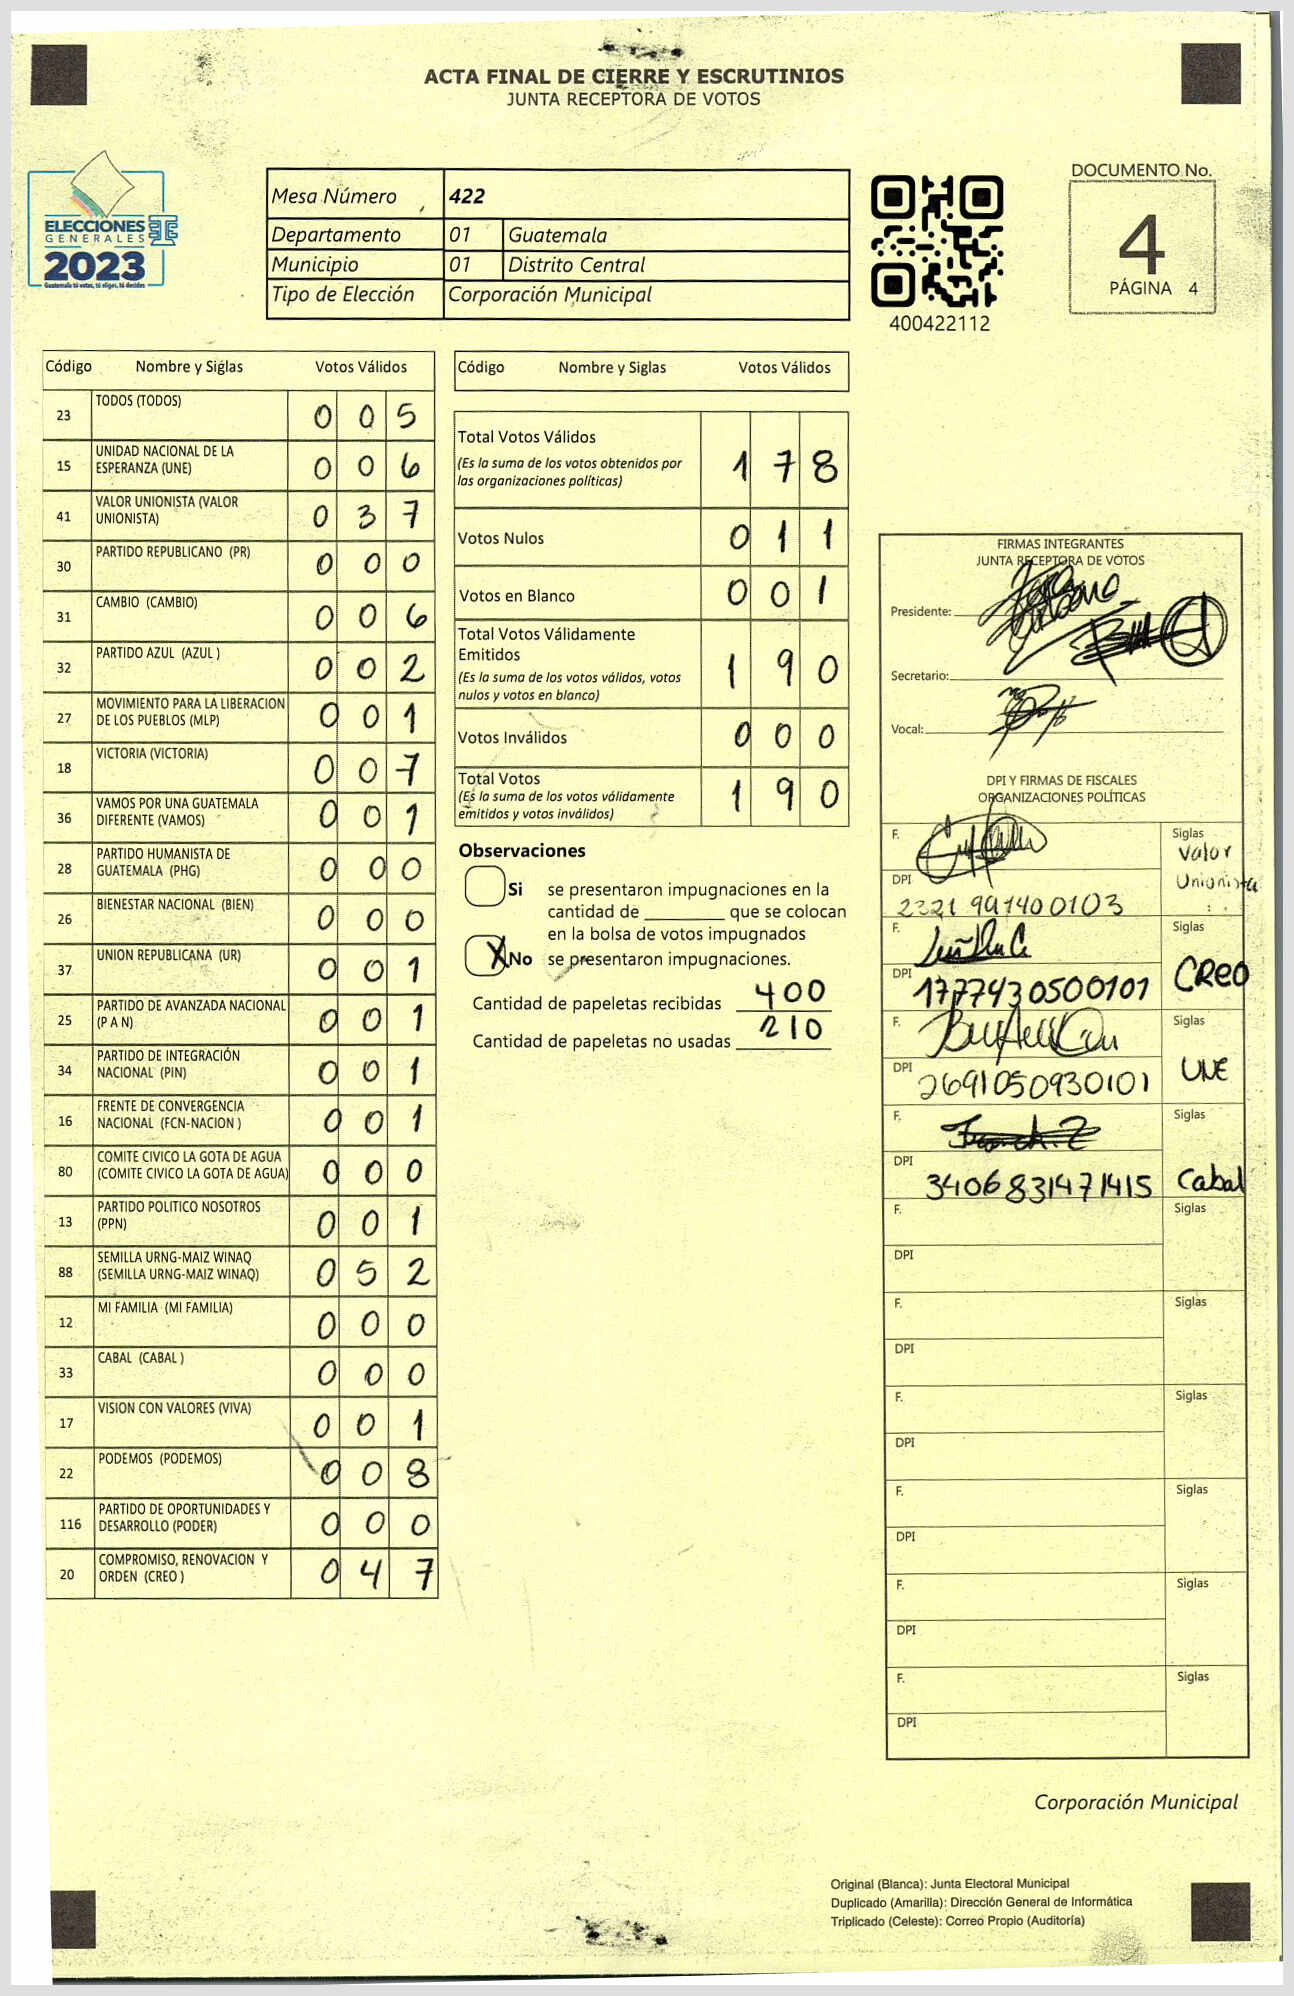 ACTA FINAL DE CIERRE Y ESCRUTINIOS
JUNTA RECEPTORA DE VOTOS
ELECCIONES
GENERALES
2023
Guatemala tú votas, tú eliges, tú decides
Mesa Número 422
Departamento 01 Guatemala
Municipio 01 Distrito Central
Tipo de Elección Corporación Municipal
400422112
DOCUMENTO No.
4
PÁGINA 4
Código Nombre y Siglas Votos Válidos
23 TODOS (TODOS) 0 0 5
15 UNIDAD NACIONAL DE LA ESPERANZA (UNE) 0 0 6
41 VALOR UNIONISTA (VALOR UNIONISTA) 0 3 7
30 PARTIDO REPUBLICANO (PR) 0 0 0
31 CAMBIO (CAMBIO) 0 0 6
32 PARTIDO AZUL (AZUL ) 0 0 2
27 MOVIMIENTO PARA LA LIBERACION DE LOS PUEBLOS (MLP) 0 0 1
18 VICTORIA (VICTORIA) 0 0 7
36 VAMOS POR UNA GUATEMALA DIFERENTE (VAMOS) 0 0 1
28 PARTIDO HUMANISTA DE GUATEMALA (PHG) 0 0 0
26 BIENESTAR NACIONAL (BIEN) 0 0 0
37 UNION REPUBLICANA (UR) 0 0 1
25 PARTIDO DE AVANZADA NACIONAL (P A N) 0 0 1
34 PARTIDO DE INTEGRACIÓN NACIONAL (PIN) 0 0 1
16 FRENTE DE CONVERGENCIA NACIONAL (FCN-NACION ) 0 0 1
80 COMITE CIVICO LA GOTA DE AGUA (COMITE CIVICO LA GOTA DE AGUA) 0 0 0
13 PARTIDO POLITICO NOSOTROS (PPN) 0 0 1
88 SEMILLA URNG-MAIZ WINAQ (SEMILLA URNG-MAIZ WINAQ) 0 5 2
12 MI FAMILIA (MI FAMILIA) 0 0 0
33 CABAL (CABAL ) 0 0 0
17 VISION CON VALORES (VIVA) 0 0 1
22 PODEMOS (PODEMOS) 0 0 8
116 PARTIDO DE OPORTUNIDADES Y DESARROLLO (PODER) 0 0 0
20 COMPROMISO, RENOVACION Y ORDEN (CREO ) 0 4 7
Código Nombre y Siglas Votos Válidos
Total Votos Válidos 1 7 8
(Es la suma de los votos obtenidos por
las organizaciones políticas)
Votos Nulos 0 1 1
Votos en Blanco 0 0 1
Total Votos Válidamente
Emitidos 1 9 0
(Es la suma de los votos válidos, votos
nulos y votos en blanco)
Votos Inválidos 0 0 0
Total Votos 1 9 0
(Es la suma de los votos válidamente
emitidos y votos inválidos)
Observaciones
Si se presentaron impugnaciones en la
cantidad de ________ que se colocan
en la bolsa de votos impugnados
X No se presentaron impugnaciones.
Cantidad de papeletas recibidas 400
Cantidad de papeletas no usadas 210
FIRMAS INTEGRANTES
JUNTA RECEPTORA DE VOTOS
Presidente:
Secretario:
Vocal:
DPI Y FIRMAS DE FISCALES
ORGANIZACIONES POLÍTICAS
F. Siglas
Valor
Unionista
DPI 2321 991400103
F. Siglas
CREO
DPI 1777430500101
F. Siglas
UNE
DPI 2691050930101
F. Siglas
DPI 3406831471415 Cabal
F. Siglas
DPI
F. Siglas
DPI
F. Siglas
DPI
F. Siglas
DPI
F. Siglas
DPI
F. Siglas
DPI
Corporación Municipal
Original (Blanca): Junta Electoral Municipal
Duplicado (Amarilla): Dirección General de Informática
Triplicado (Celeste): Correo Propio (Auditoría)